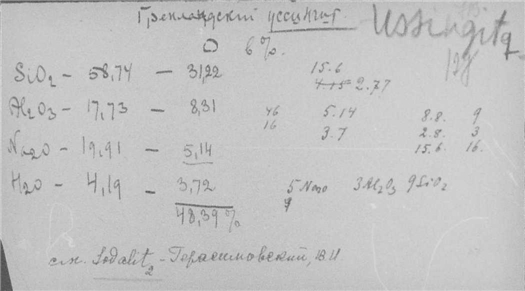 Гренландский уссингит
Ussingit
O 6%.
SiO2 - 58,74 - 31,22
15.6
4.15 2.77
Al2O3 - 17,73 - 8,31
46 5.14 8.8. 9
16 3.7 2.8. 3
Na2O - 19,91 - 5,14
15.6. 16.
H2O - 4,19 - 3,72
5 Na2O 3Al2O3 9SiO2
48,39%
см. Sodalit2 - Герасимовский, В.И.